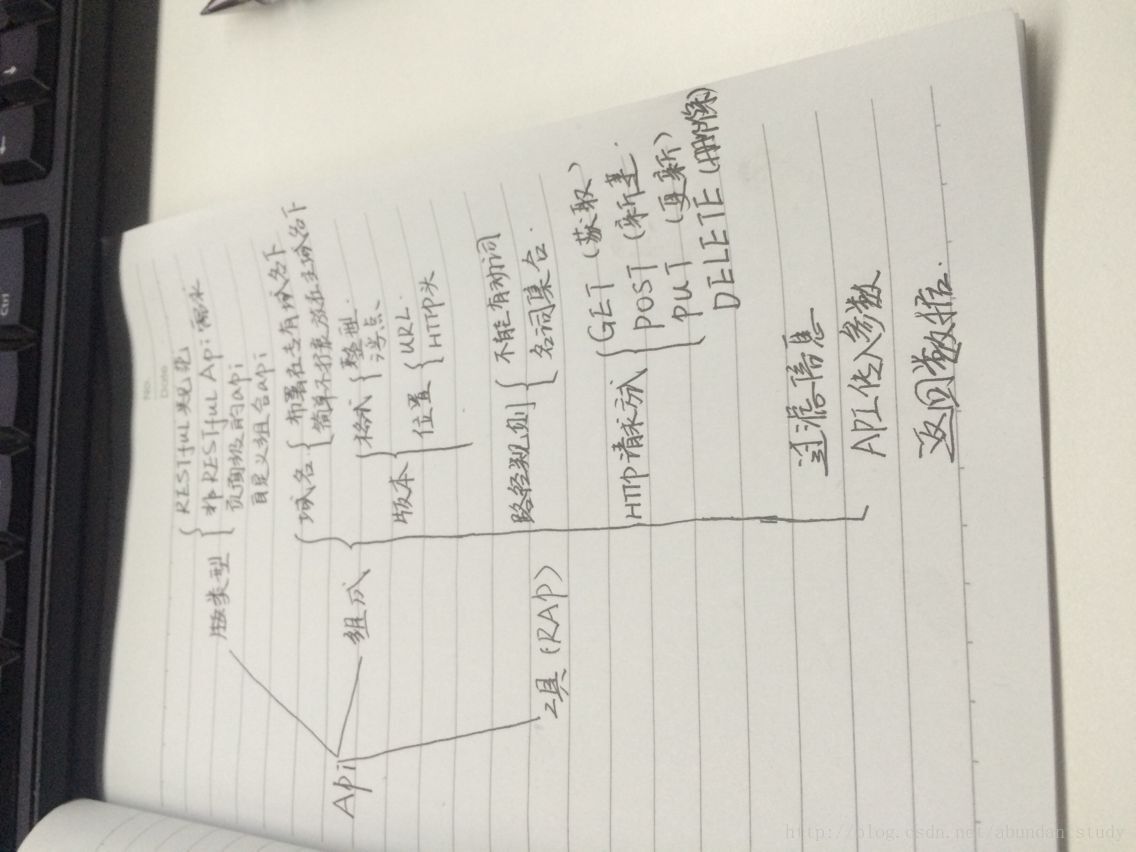 No.
Date
RESTful规范
非RESTful Api
页面级的api
自定义组合api
类型
Api
组成
域名
部署在专有域名下
简单不扩展放在主域名下
版本
格式
整型.
浮点
位置
URL.
HTTP头
路径规则
不能有动词
名词集合.
HTTP请求方式
GET (获取)
POST (新建.
PUT (更新)
DELETE (删除)
过滤信息
API传入参数
返回数据.
工具(RAP)
Ctrl
http://blog.csdn.net/abundantstudy